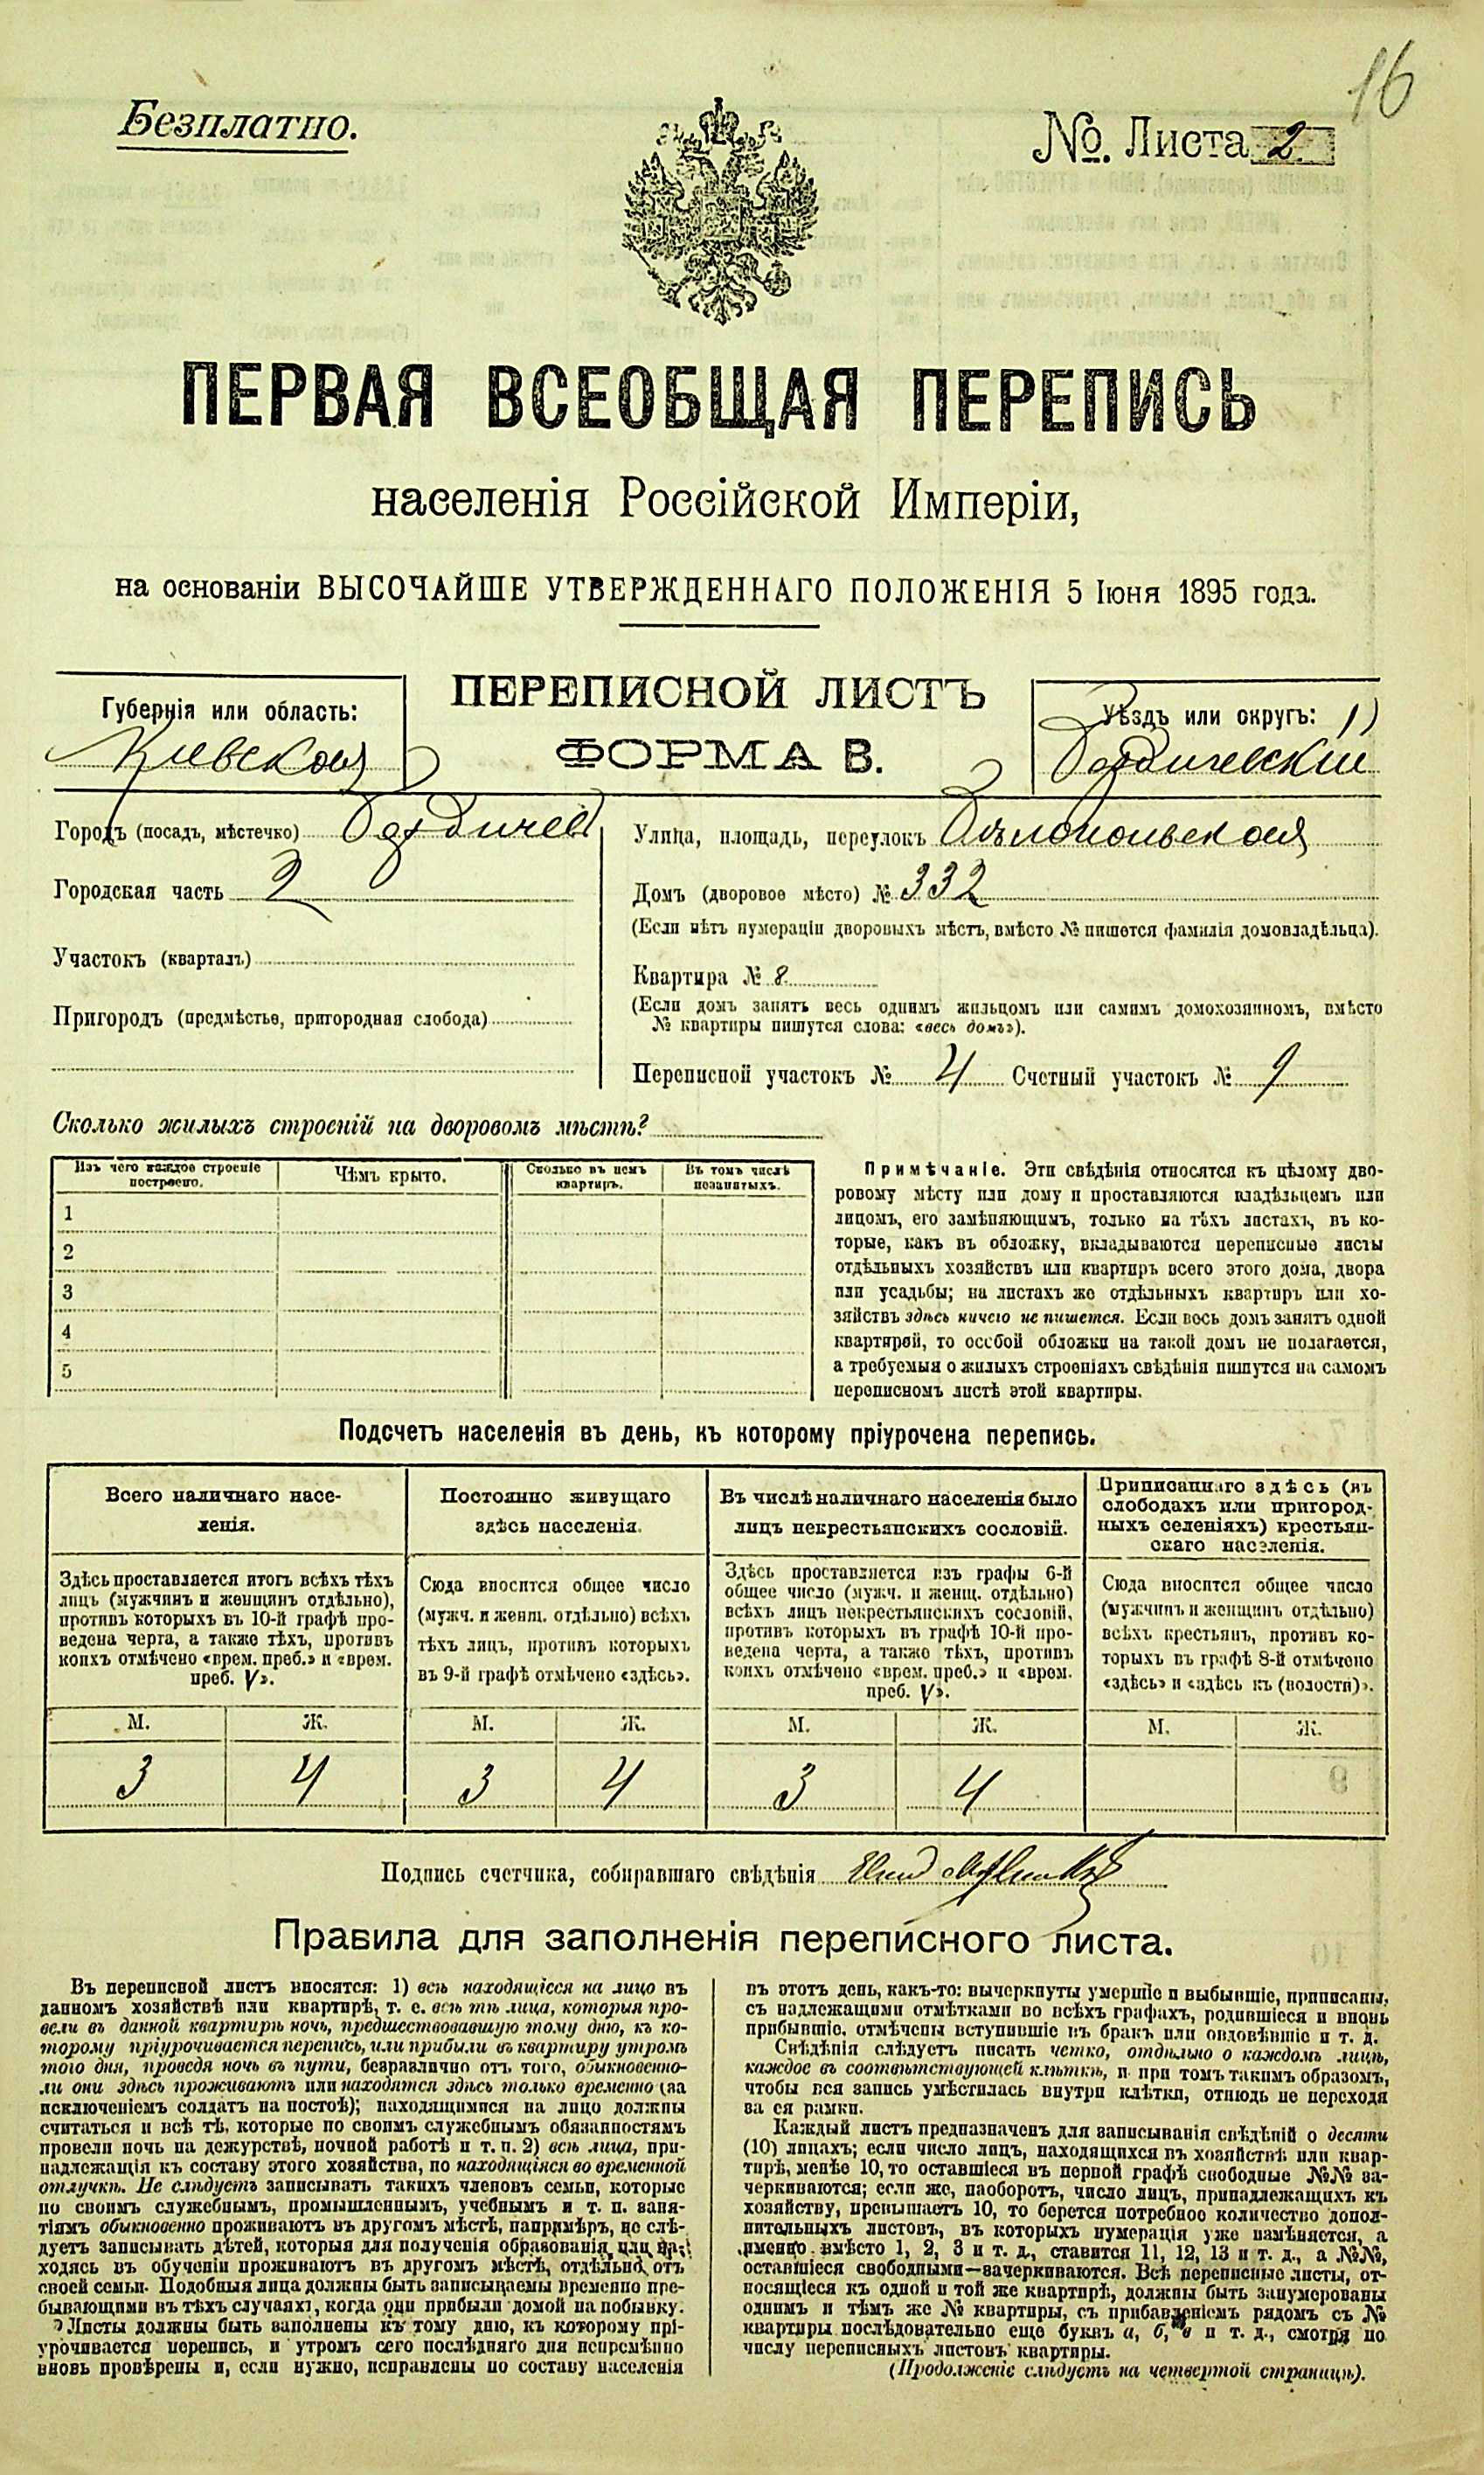 16
Безплатно.
№. Листа 2
ПЕРВАЯ ВСЕОБЩАЯ ПЕРЕПИСЬ
населенія Россійской Имперіи,
на основаніи ВЫСОЧАЙШЕ УТВЕРЖДЕННАГО ПОЛОЖЕНІЯ 5 Іюня 1895 года.
Губернія или область:
Киевская
ПЕРЕПИСНОЙ ЛИСТЪ
ФОРМА В.
Уѣздъ или округъ:
Бердичевскій
Городъ (посадъ, мѣстечко) Бердичев
Городская часть 2
Участокъ (кварталъ)
Пригородъ (предмѣстье, пригородная слобода)
Улица, площадь, переулокъ Бѣлопольская
Домъ (дворовое мѣсто) № 332
(Если нѣтъ нумераціи дворовыхъ мѣстъ, вмѣсто № пишется фамилія домовладѣльца).
Квартира № 8
(Если домъ занятъ весь однимъ жильцомъ или самимъ домохозяиномъ, вмѣсто
№ квартиры пишутся слова: «весь домъ»).
Переписной участокъ № 4 Счетный участокъ № 9
Сколько жилыхъ строеній на дворовомъ мѣстѣ?
Изъ чего каждое строеніе
построено.
Чѣмъ крыто.
Сколько въ немъ
квартиръ.
Въ томъ числѣ
незанятыхъ.
1
2
3
4
5
Примѣчаніе. Эти свѣдѣнія относятся къ цѣлому дво-
ровому мѣсту или дому и проставляются владѣльцемъ или
лицомъ, его замѣняющимъ, только на тѣхъ листахъ, въ ко-
торые, какъ въ обложку, вкладываются переписные листы
отдѣльныхъ хозяйствъ или квартиръ всего этого дома, двора
или усадьбы; на листахъ же отдѣльныхъ квартиръ или хо-
зяйствъ здѣсь ничего не пишется. Если весь домъ занятъ одной
квартирой, то особой обложки на такой домъ не полагается,
а требуемыя о жилыхъ строеніяхъ свѣдѣнія пишутся на самомъ
переписномъ листѣ этой квартиры.
Подсчетъ населенія въ день, къ которому пріурочена перепись.
Всего наличнаго насе-
ленія.
Здѣсь проставляется итогъ всѣхъ тѣхъ
лицъ (мужчинъ и женщинъ отдѣльно),
противъ которыхъ въ 10-й графѣ про-
ведена черта, а также тѣхъ, противъ
коихъ отмѣчено «врем. преб.» и «врем.
преб. V».
Постоянно живущаго
здѣсь населенія.
Сюда вносится общее число
(мужч. и женщ. отдѣльно) всѣхъ
тѣхъ лицъ, противъ которыхъ
въ 9-й графѣ отмѣчено «здѣсь».
Въ числѣ наличнаго населенія было
лицъ некрестьянскихъ сословій.
Здѣсь проставляется изъ графы 6-й
общее число (мужч. и женщ. отдѣльно)
всѣхъ лицъ некрестьянскихъ сословій,
противъ которыхъ въ графѣ 10-й про-
ведена черта, а также тѣхъ, противъ
коихъ отмѣчено «врем. преб.» и «врем.
преб. V».
Приписаннаго здѣсь (въ
слободахъ или пригород-
ныхъ селеніяхъ) крестьян-
скаго населенія.
Сюда вносится общее число
(мужчинъ и женщинъ отдѣльно)
всѣхъ крестьян, противъ ко-
торыхъ въ графѣ 8-й отмѣчено
«здѣсь» и «здѣсь къ (волости)».
М. Ж. М. Ж. М. Ж. М. Ж.
3 4 3 4 3 4
Подпись счетчика, собиравшаго свѣдѣнія
Правила для заполненія переписного листа.
Въ переписной листъ вносятся: 1) всѣ находящіеся на лицо въ
данномъ хозяйствѣ или квартирѣ, т. е. всѣ тѣ лица, которыя про-
вели въ данной квартирѣ ночь, предшествовавшую тому дню, къ ко-
торому пріурочивается перепись, или прибыли въ квартиру утромъ
того дня, проведя ночь въ пути, безразлично отъ того, обыкновенно-
ли они здѣсь проживаютъ или находятся здѣсь только временно (за
исключеніемъ солдатъ на постоѣ); находящимися на лицо должны
считаться и всѣ тѣ, которые по своимъ служебнымъ обязанностямъ
провели ночь на дежурствѣ, ночной работѣ и т. п. 2) всѣ лица, при-
надлежащія къ составу этого хозяйства, но находящіяся во временной
отлучкѣ. Не слѣдуетъ записывать такихъ членовъ семьи, которые
по своимъ служебнымъ, промышленнымъ, учебнымъ и т. п. заня-
тіямъ обыкновенно проживаютъ въ другомъ мѣстѣ, напримѣръ, не слѣ-
дуетъ записывать дѣтей, которыя для полученія образованія или на-
ходясь въ обученіи проживаютъ въ другомъ мѣстѣ, отдѣльно отъ
своей семьи. Подобныя лица должны быть записываемы временно пре-
бывающими въ тѣхъ случаяхъ, когда они прибыли домой на побывку.
Листы должны быть заполнены къ тому дню, къ которому прі-
урочивается перепись, и утромъ сего послѣдняго дня непремѣнно
вновь провѣрены и, если нужно, исправлены по составу населенія
въ этотъ день, какъ-то: вычеркнуты умершіе и выбывшіе, приписаны,
съ надлежащими отмѣтками во всѣхъ графахъ, родившіеся и вновь
прибывшіе, отмѣчены вступившіе въ бракъ или овдовѣвшіе и т. д.
Свѣдѣнія слѣдуетъ писать четко, отдѣльно о каждомъ лицѣ,
каждое въ соотвѣтствующей клѣткѣ, и при томъ такимъ образомъ,
чтобы вся запись умѣстилась внутри клѣтки, отнюдь не переходя
за ея рамки.
Каждый листъ предназначенъ для записыванія свѣдѣній о десяти
(10) лицахъ; если число лицъ, находящихся въ хозяйствѣ или квар-
тирѣ, менѣе 10, то оставшіеся въ первой графѣ свободные №№ за-
черкиваются; если же, наоборотъ, число лицъ, принадлежащихъ къ
хозяйству, превышаетъ 10, то берется потребное количество допол-
нительныхъ листовъ, въ которыхъ нумерація уже измѣняется, а
именно вмѣсто 1, 2, 3 и т. д., ставится 11, 12, 13 и т. д., а №№,
оставшіеся свободными—зачеркиваются. Всѣ переписные листы, от-
носящіеся къ одной и той же квартирѣ, должны быть занумерованы
однимъ и тѣмъ же № квартиры, съ прибавленіемъ рядомъ съ №
квартиры послѣдовательно еще буквъ а, б, в и т. д., смотря по
числу переписныхъ листовъ квартиры.
(Продолженіе слѣдуетъ на четвертой страницѣ).